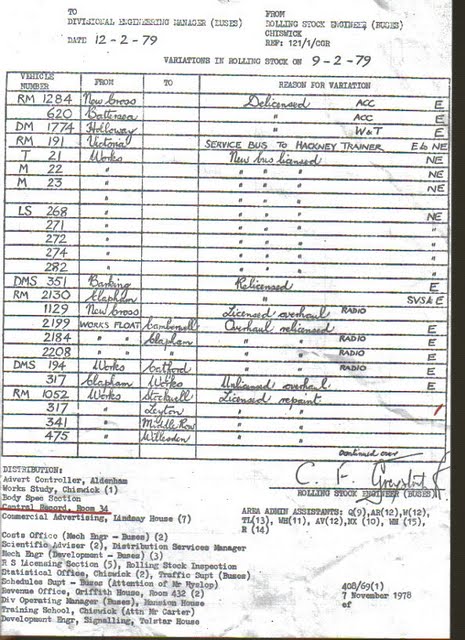 TO
DIVISIONAL ENGINEERING MANAGER (BUSES)
FROM
ROLLING STOCK ENGINEER (BUSES)
CHISWICK
REF: 121/1/CGR
DATE 12-2-79
VARIATIONS IN ROLLING STOCK ON 9-2-79
VEHICLE NUMBER FROM TO REASON FOR VARIATION
RM 1284 New Cross Delicensed ACC E
620 Battersea " ACC E
DM 1774 Holloway " W&T E
RM 191 Victoria SERVICE BUS TO HACKNEY TRAINER E to NE
T 21 Works New bus licensed NE
M 22 " " " " NE
M 23 " " " " NE
" " " "
LS 268 " " " " NE
271 " " " " "
272 " " " " "
274 " " " " "
282 " " " " "
DMS 351 Barking Relicensed E
RM 2130 Clapham " SVS & E
1129 New Cross Licensed overhaul RADIO
2199 WORKS FLOAT Camberwell Overhaul relicensed E
2184 " " Clapham " " RADIO E
2208 " " " " " RADIO E
DMS 194 Works Catford " " RADIO E
317 Clapham Works Unlicensed overhaul E
RM 1052 Works Stockwell Licensed repaint
317 " Leyton " "
341 " Middle Row " "
475 " Willesden " "
continued over
ROLLING STOCK ENGINEER (BUSES)
DISTRIBUTION:
Advert Controller, Aldenham
Works Study, Chiswick (1)
Body Spec Section
Central Record, Room 34
Commercial Advertising, Lindsay House (7)
AREA ADMIN ASSISTANTS: Q(9),AR(12),W(12),
TL(13), WH(11), AV(12),NX (10), WM (15),
R (14)
Costs Office (Mech Engr - Buses) (2)
Scientific Adviser (2), Distribution Services Manager
Mech Engr (Development - Buses) (3)
R S Licensing Section (5), Rolling Stock Inspection
Statistical Office, Chiswick (2), Traffic Supt (Buses)
Schedules Supt - Buses (Attention of Mr Ryelop)
Revenue Office, Griffith House, Room 432 (2)
Div Operating Manager (Buses), Mansion House
Training School, Chiswick (Attn Mr Carter)
Development Engr, Signalling, Telstar House
408/69(1)
7 November 1978
ef